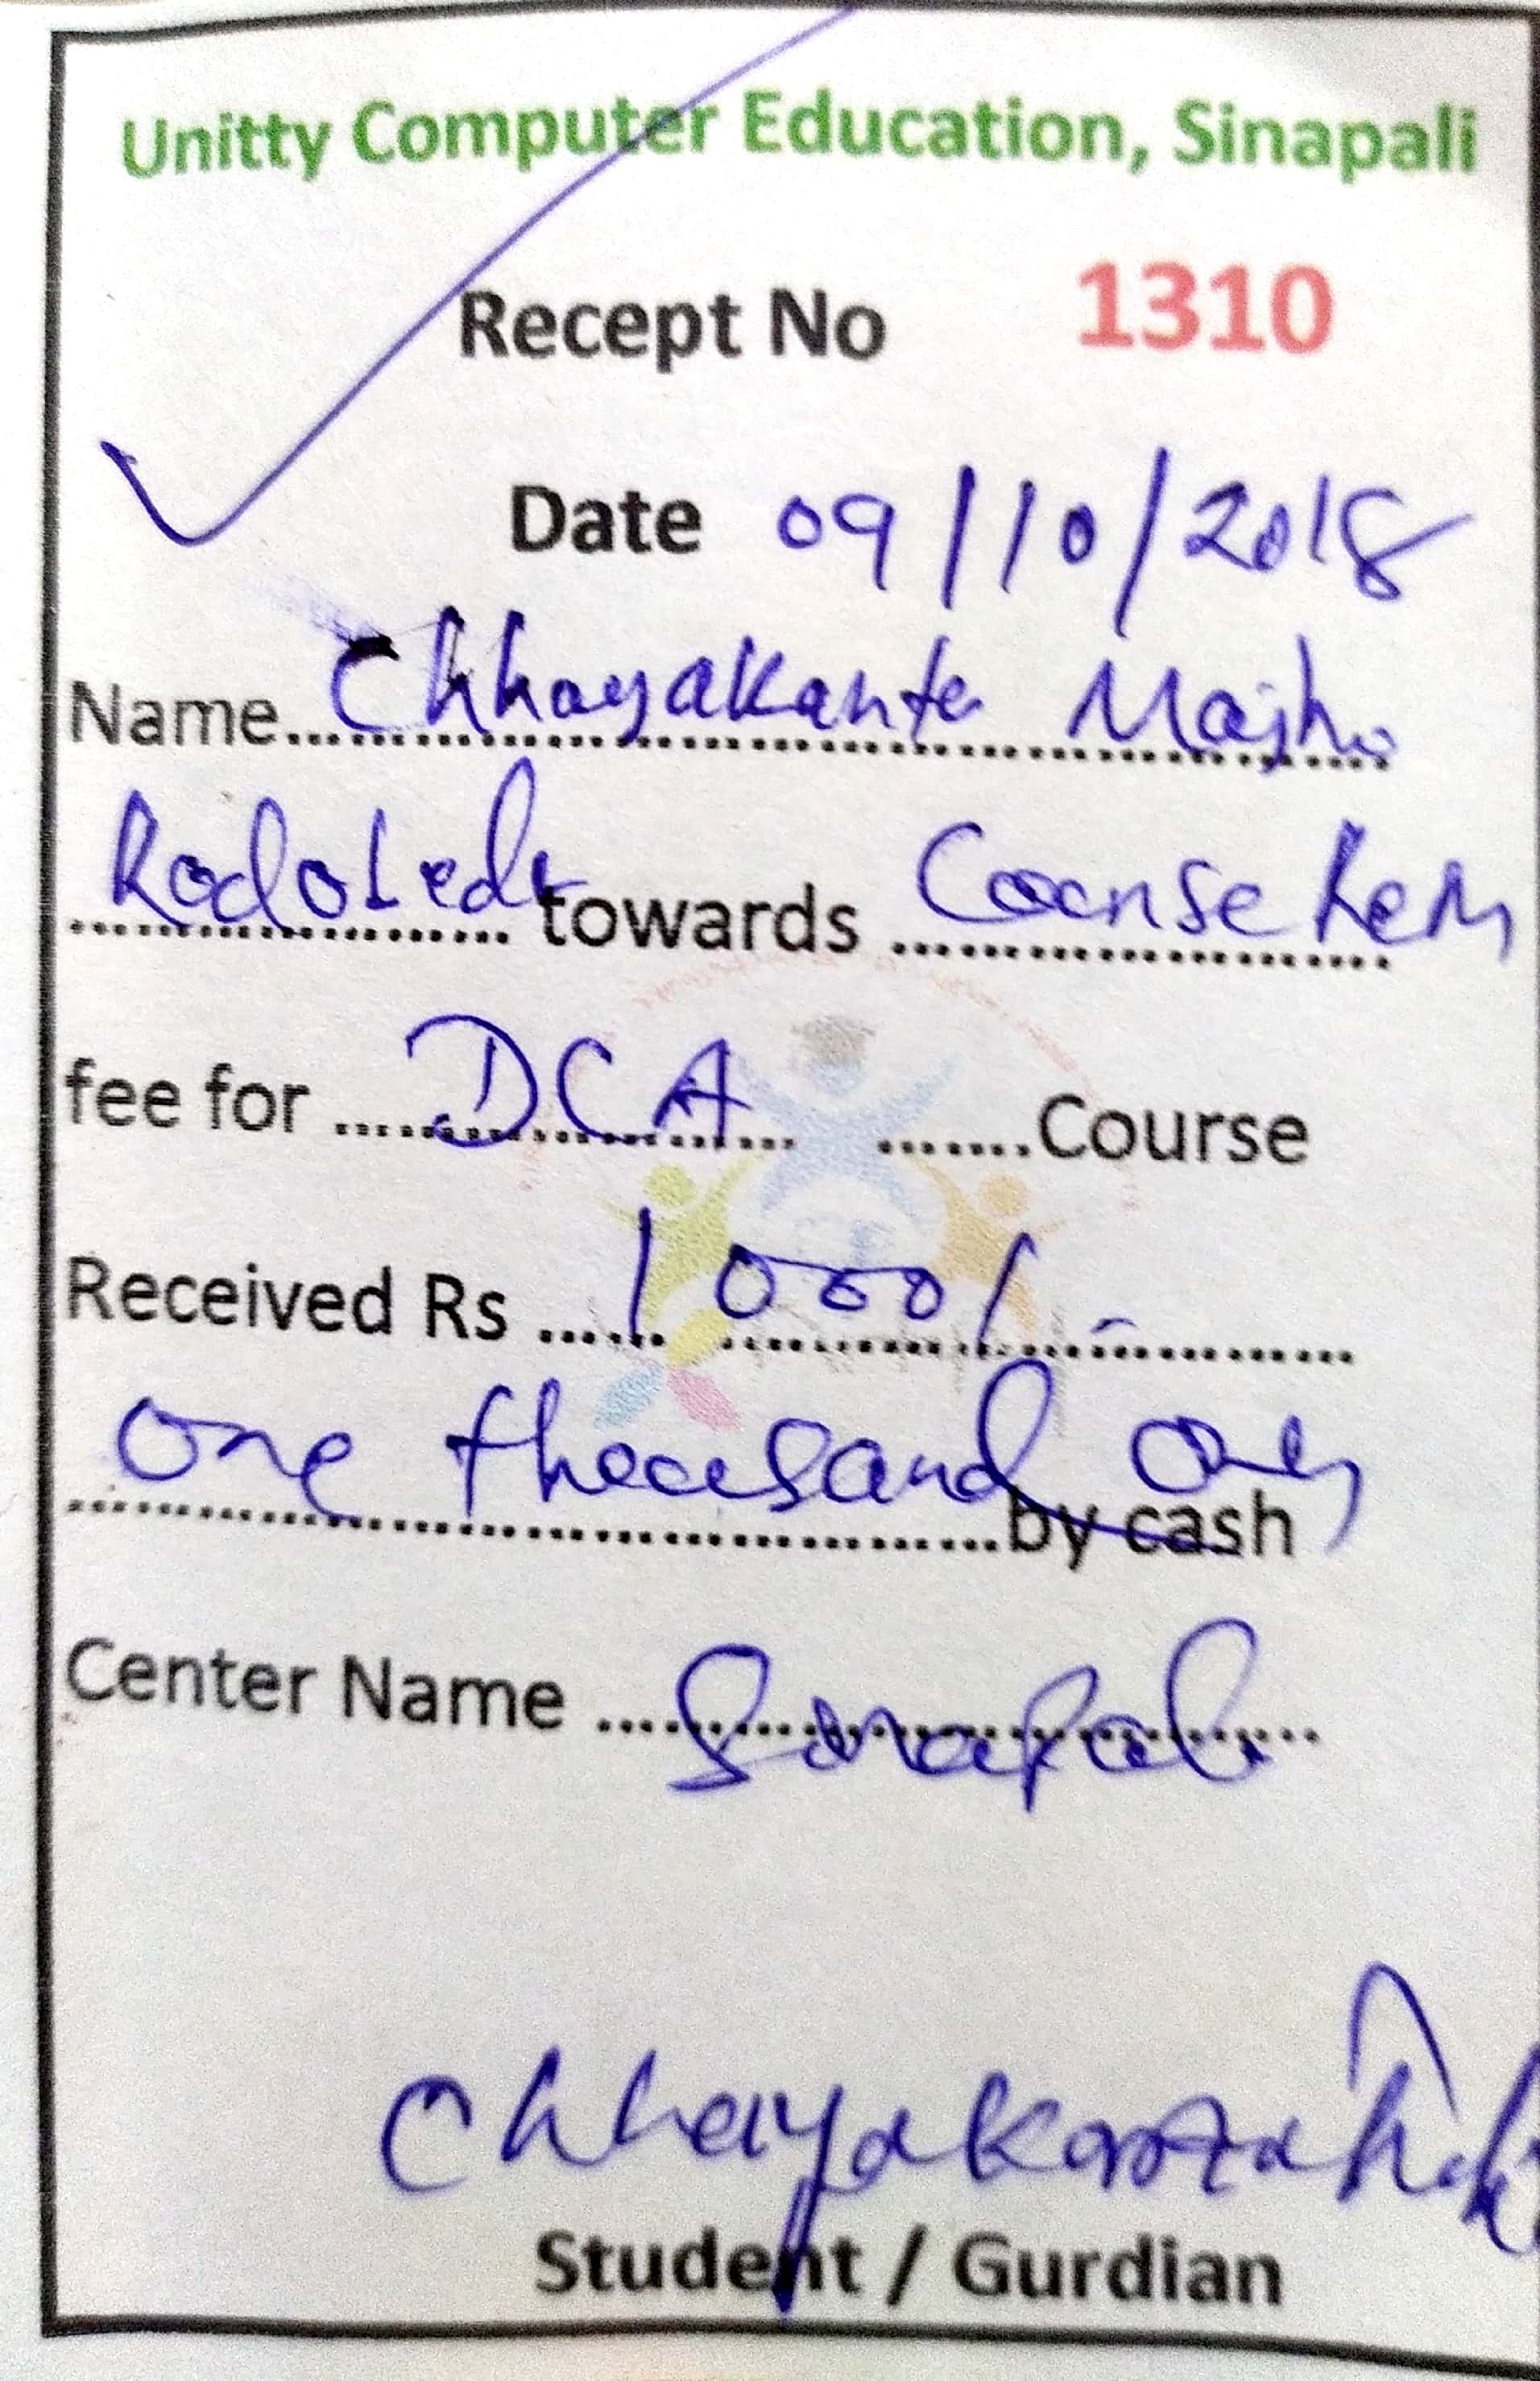 Unitty Computer Education, Sinapali
Recept No 1310
Date 09/10/2018
Name Chhayakanta Majhi
towards Course
fee for DCA Course
Received Rs 1000/-
One thousand Only
by cash
Center Name Sinapali
Chhayakanta Majhi
Student / Gurdian